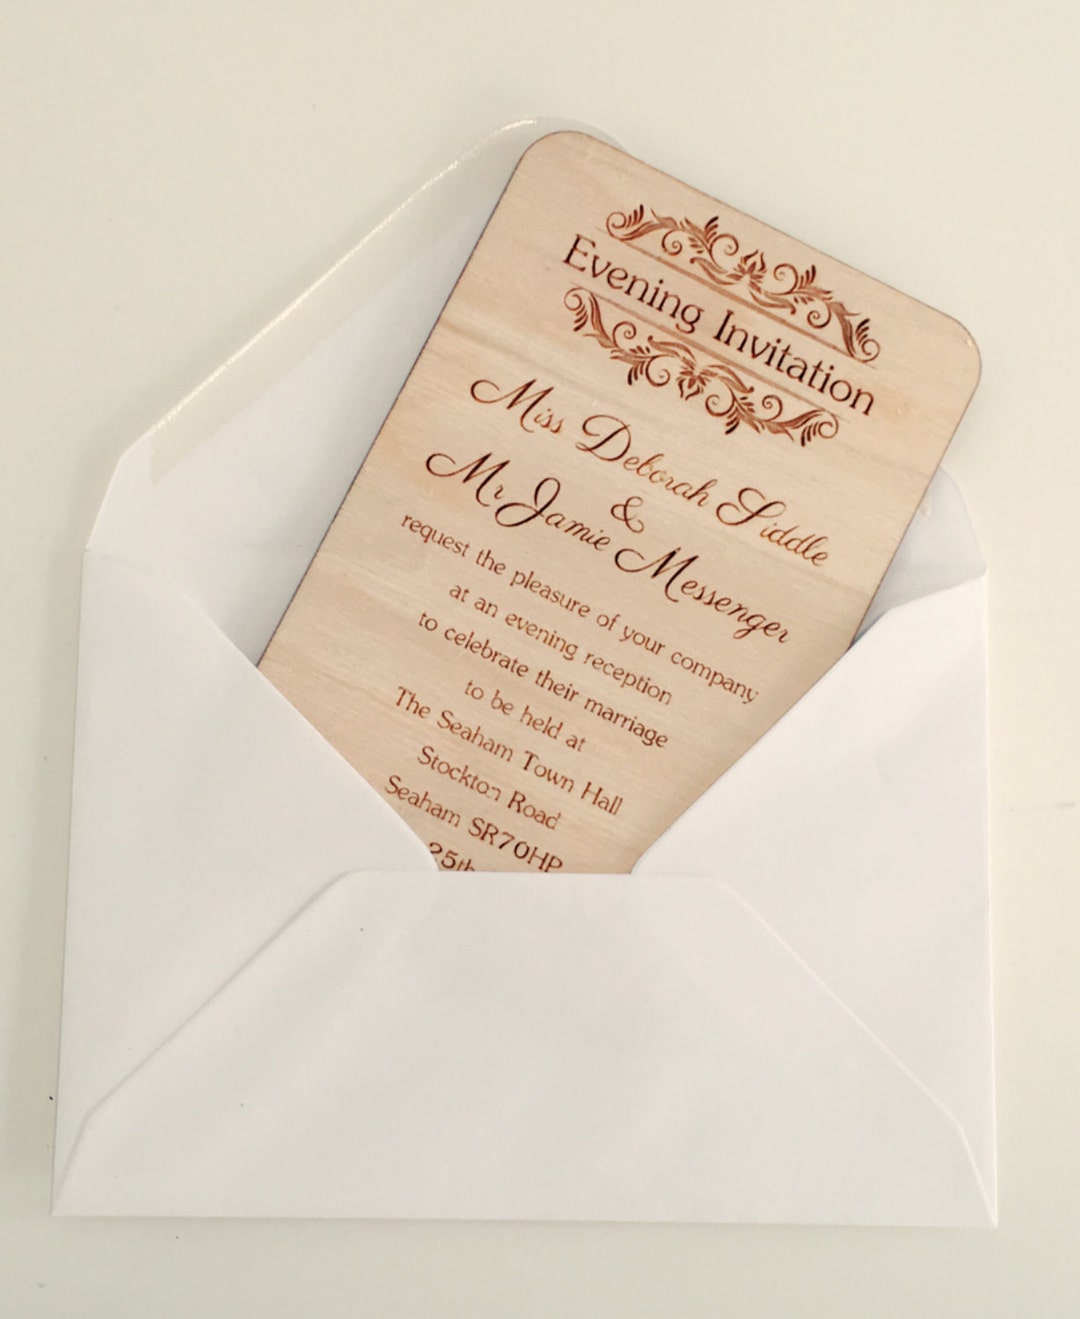 Evening Invitation
Miss Deborah Siddle
&
Mr Jamie Messenger
request the pleasure of your company
at an evening reception
to celebrate their marriage
to be held at
The Seaham Town Hall
Stockton Road
Seaham SR70HP
25th